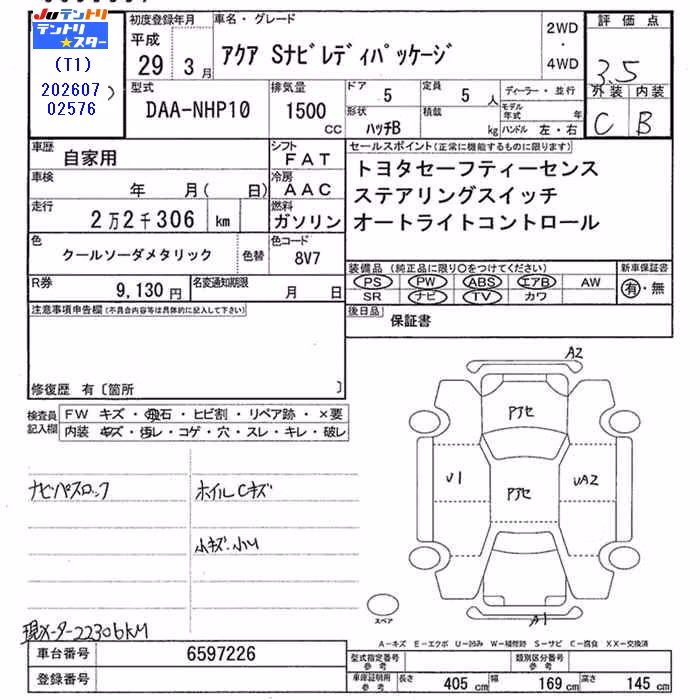 Juテントリ
テントリ★スター
(T1)
202607
02576
初度登録年月
平成
29 3月
車名・グレード
アクア Sナビレディパッケージ
2WD
・
4WD
評価点
3.5
外装 内装
C B
型式
DAA-NHP10
排気量
1500
cc
ドア
5
定員
5人
形状
ハッチB
積載
kg
ディーラー・並行
モデル年式 年
ハンドル 左・右
車歴
自家用
シフト
FAT
車検
年 月( 日)
冷房
AAC
走行
2万2千306 km
燃料
ガソリン
色
クールソーダメタリック
色替
色コード
8V7
R券
9,130円
名変通知期限
月 日
セールスポイント(正常に機能するものに限ります)
トヨタセーフティーセンス
ステアリングスイッチ
オートライトコントロール
装備品(純正品に限り〇をつけてください)
新車保証書
PS PW ABS エアB AW
SR ナビ TV カワ
有・無
後日品
保証書
注意事項申告欄(不具合内容等は具体的に記入して下さい)
修復歴 有〔箇所 〕
検査員
記入欄
FW キズ・飛石・ヒビ割・リペア跡・×要
内装 キズ・汚レ・コゲ・穴・スレ・キレ・破レ
ナビパスロック
ホイルCキズ
小キズ・小U
現メーター22306KM
A2
Pアセ
U1
Pアセ
UA2
A1
スペア
A-キズ E-エクボ U-凹み W-補修跡 S-サビ C-腐食 XX-交換済
車台番号
6597226
登録番号
型式指定番号
参考
類別区分番号
参考
車庫証明用
参考
長さ
405 cm
幅
169 cm
高さ
145 cm